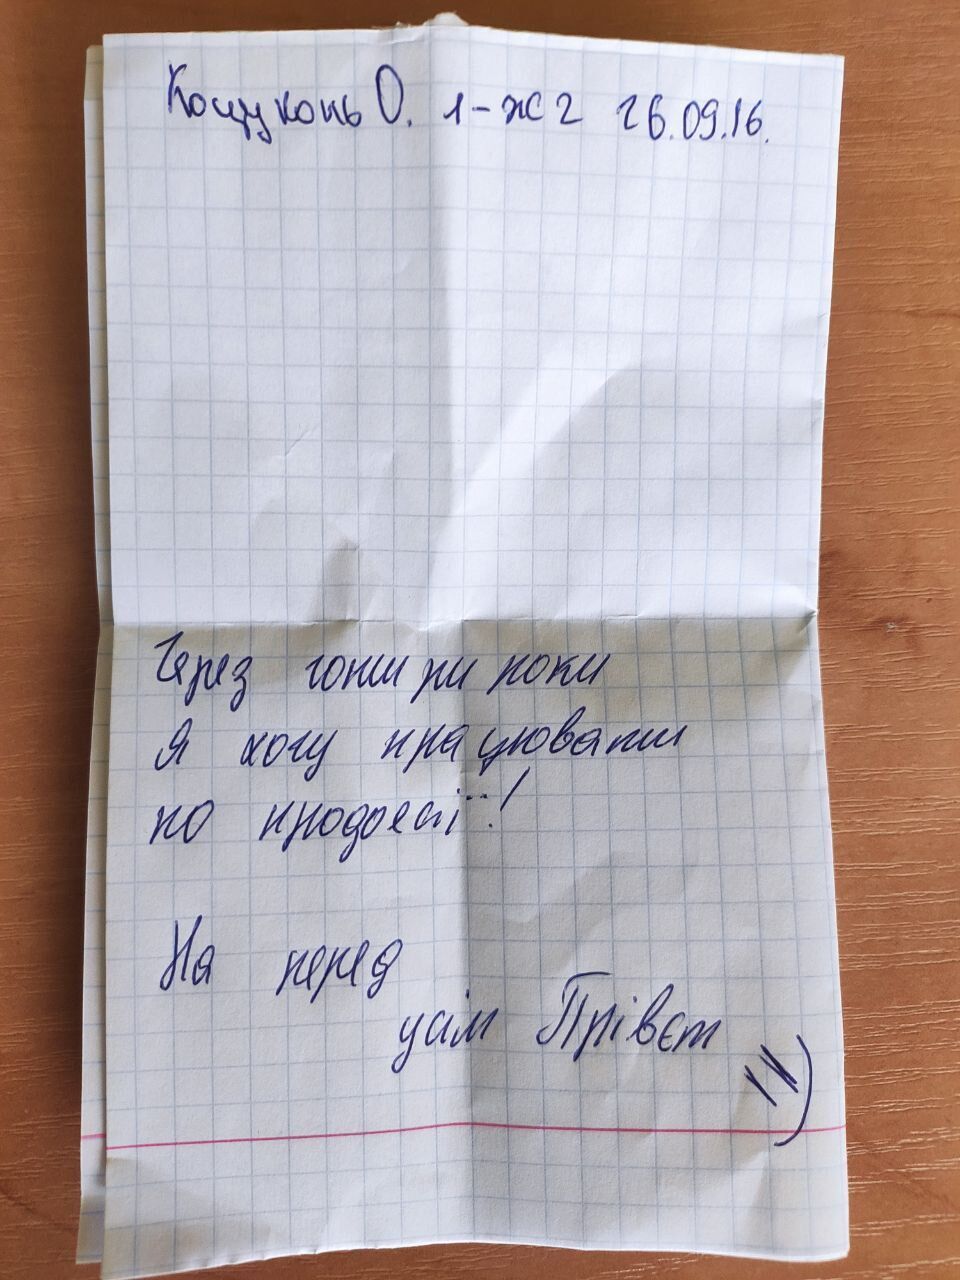 Кощуконь О. 1-ЖС2 26.09.16.
Через чотири роки
я хочу працювати
по професії!
На перед
усім Прівєт